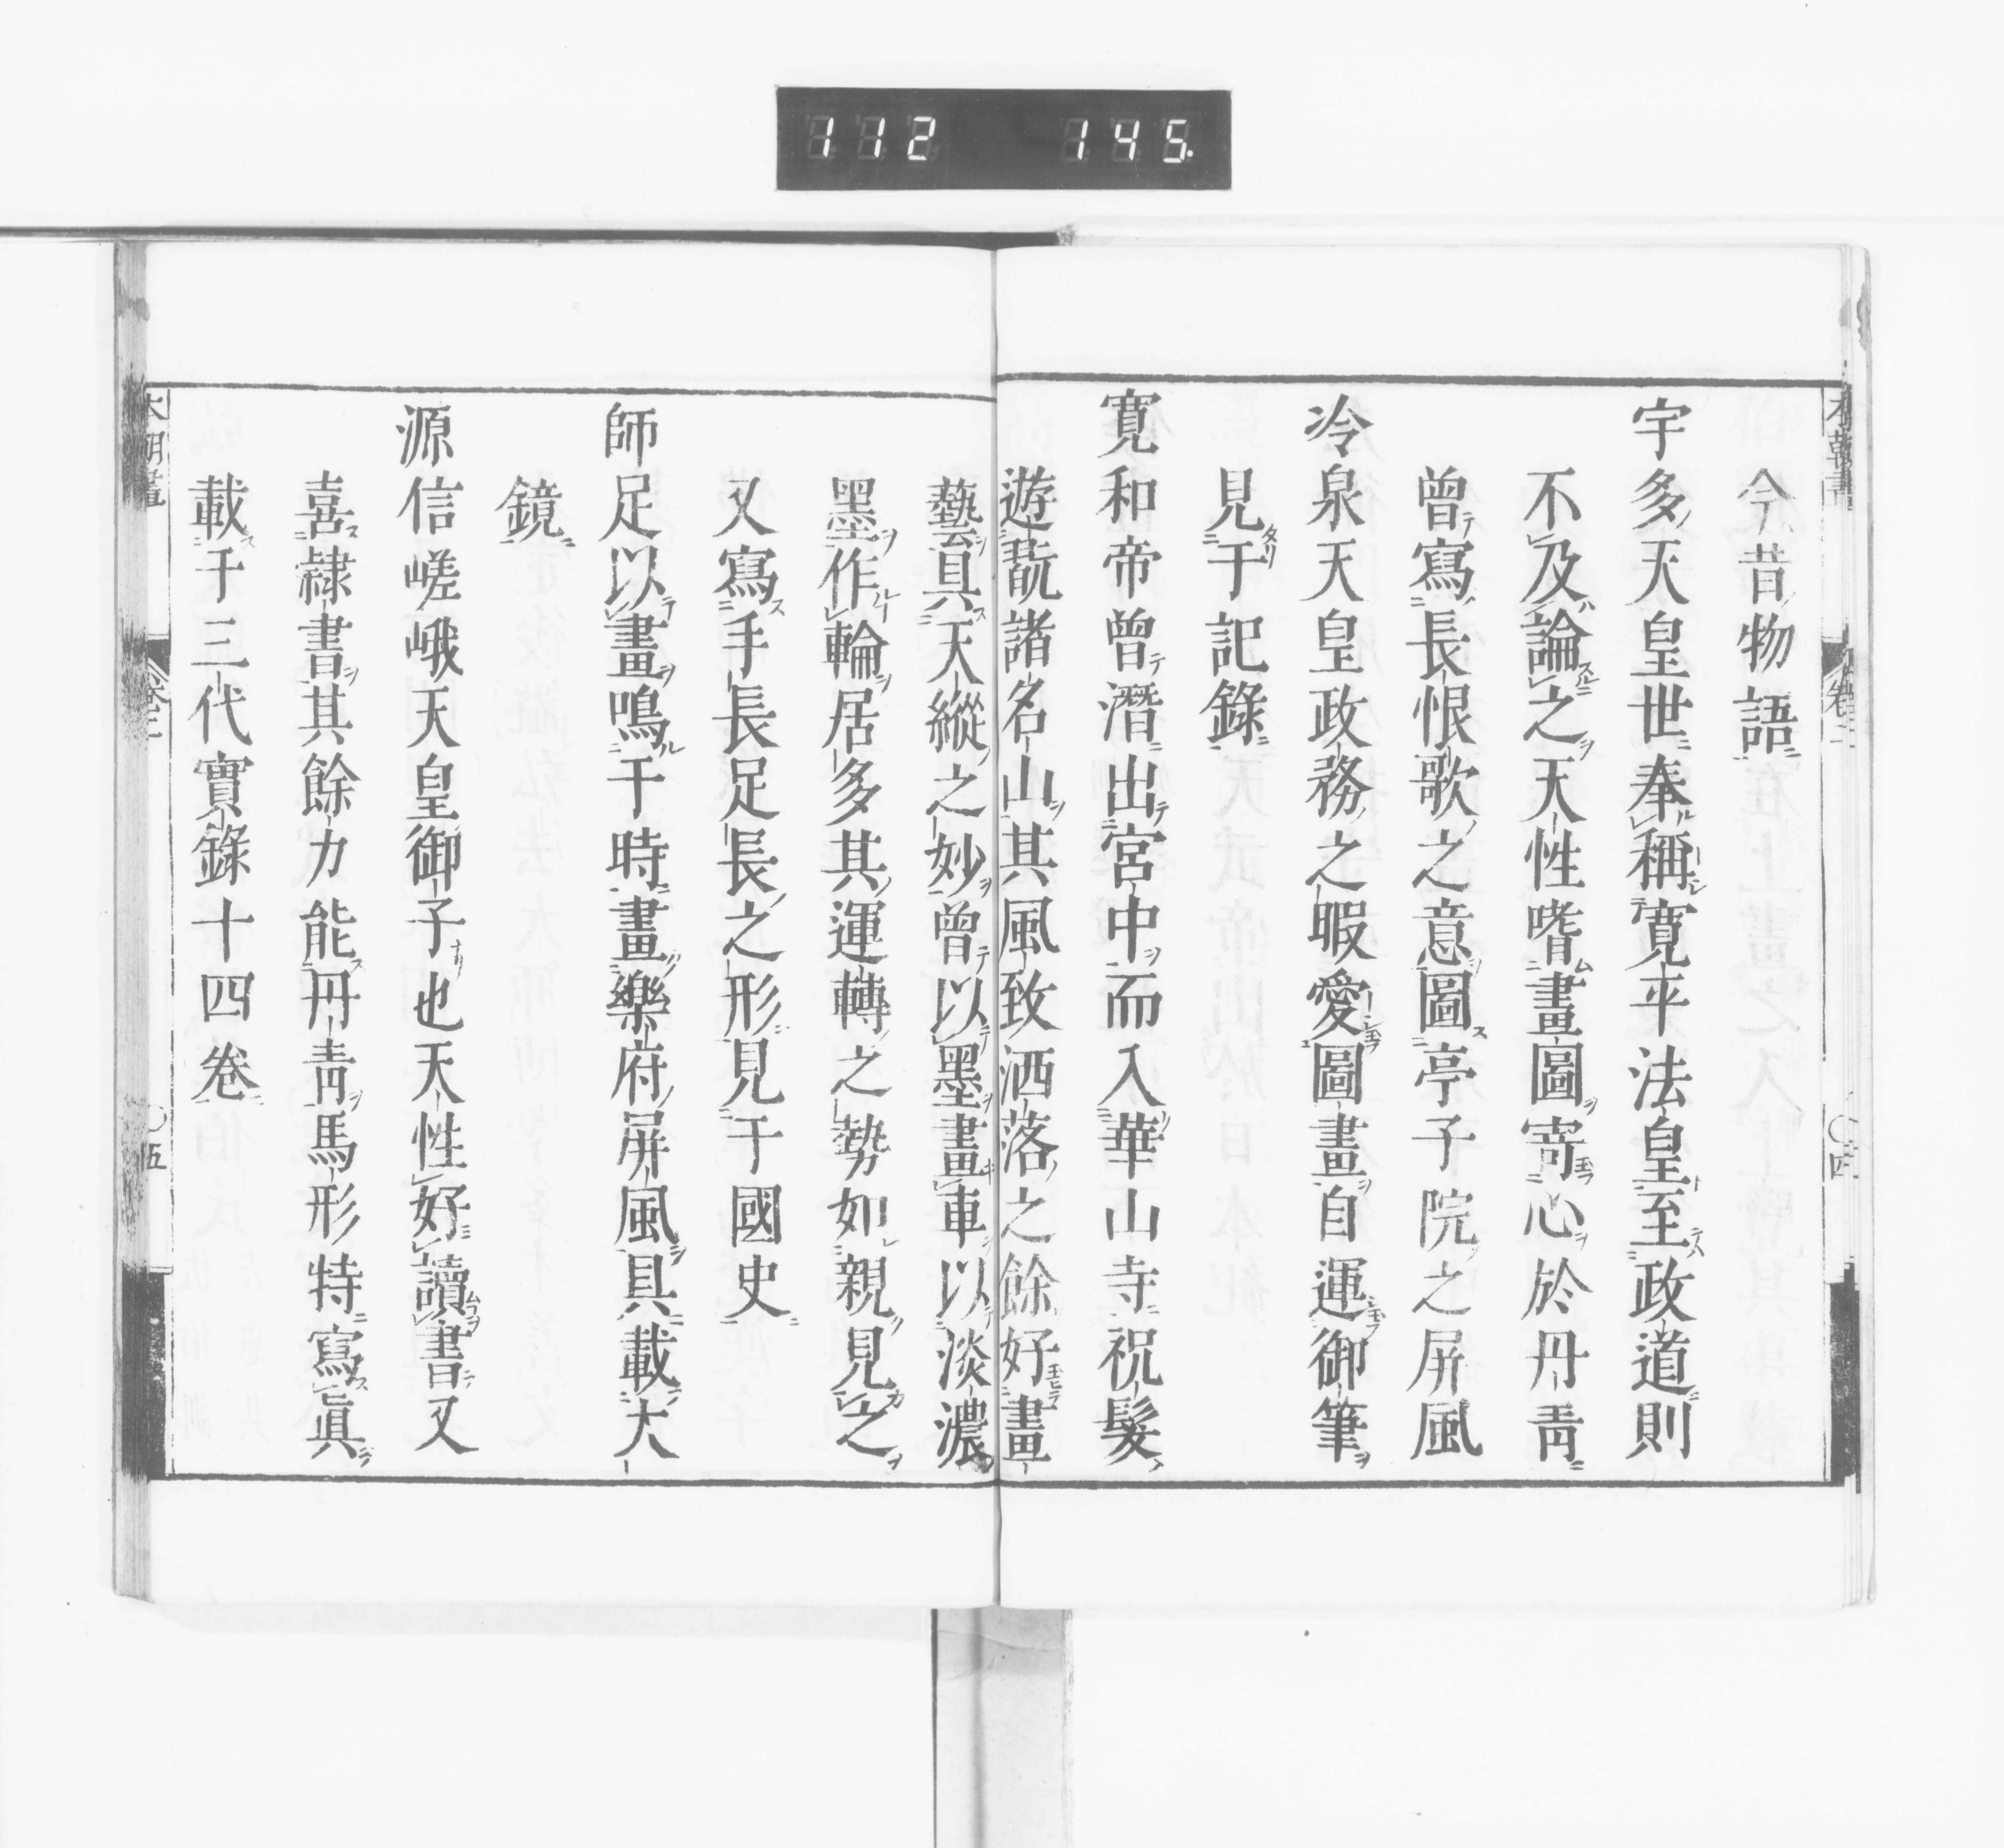 112 145.
本朝畫
卷二
○四
今昔物語
宇多天皇世奉稱寛平法皇至政道則
不及論之天性嗜畫圖寄心於丹青
曾寫長恨歌之意圖亭子院之屏風
冷泉天皇政務之暇愛圖畫自運御筆
見于記錄
寛和帝曾潛出宮中而入華山寺祝髮
遊翫諸名山其風致洒落之餘好畫
藝具天縱之妙曾以墨畫車以淡濃
墨作輪居多其運轉之勢如親見之
又寫手長足長之形見于國史
師足以畫鳴于時畫樂府屏風具載大
鏡
源信嵯峨天皇御子也天性好讀書又
喜隷書其餘力能丹青馬形特寫眞
載于三代實錄十四卷
本朝畫
卷二
○五